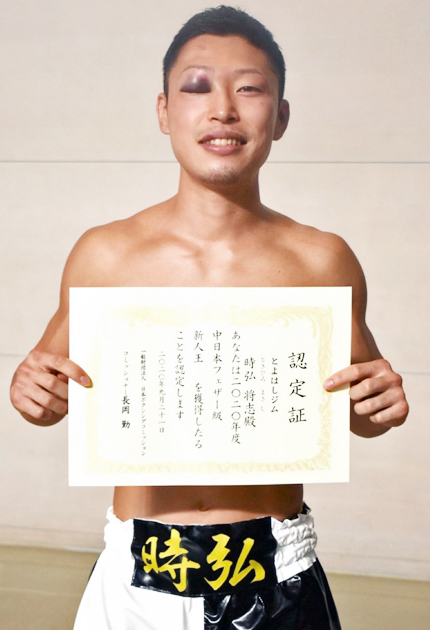 認定証
とよはしジム
時弘 将志殿
ときひろ まさし
あなたは二〇二〇年度
中日本フェザー級
新人王 を獲得したる
ことを認定します
二〇二〇年九月二十一日
一般財団法人 日本ボクシングコミッション
コミッショナー 長岡 勤
時弘